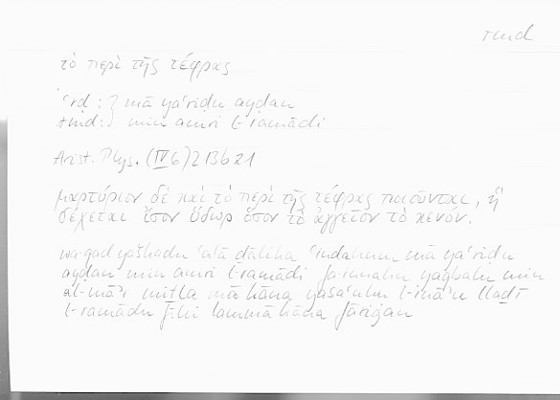 rmd
τὸ περὶ τῆς τέφρας
ʿrḍ : } mā yaʿriḍu ayḍan
rmd : } min amri l-ramādi
Arist. Phys. (IV 6) 213b21
μαρτύριον δὲ καὶ τὸ περὶ τῆς τέφρας ποιοῦνται, ἣ
δέχεται ἴσον ὕδωρ ὅσον τὸ ἀγγεῖον τὸ κενόν.
wa-qad yašhadu ʿalā ḏālika ʿindahum mā yaʿriḍu
ayḍan min amri l-ramādi fa-innahu yaqbalu min
al-māʾi miṯla mā kāna yasaʿuhu l-ināʾu llaḏī
l-ramādu fīhi lammā kāna fāriġan